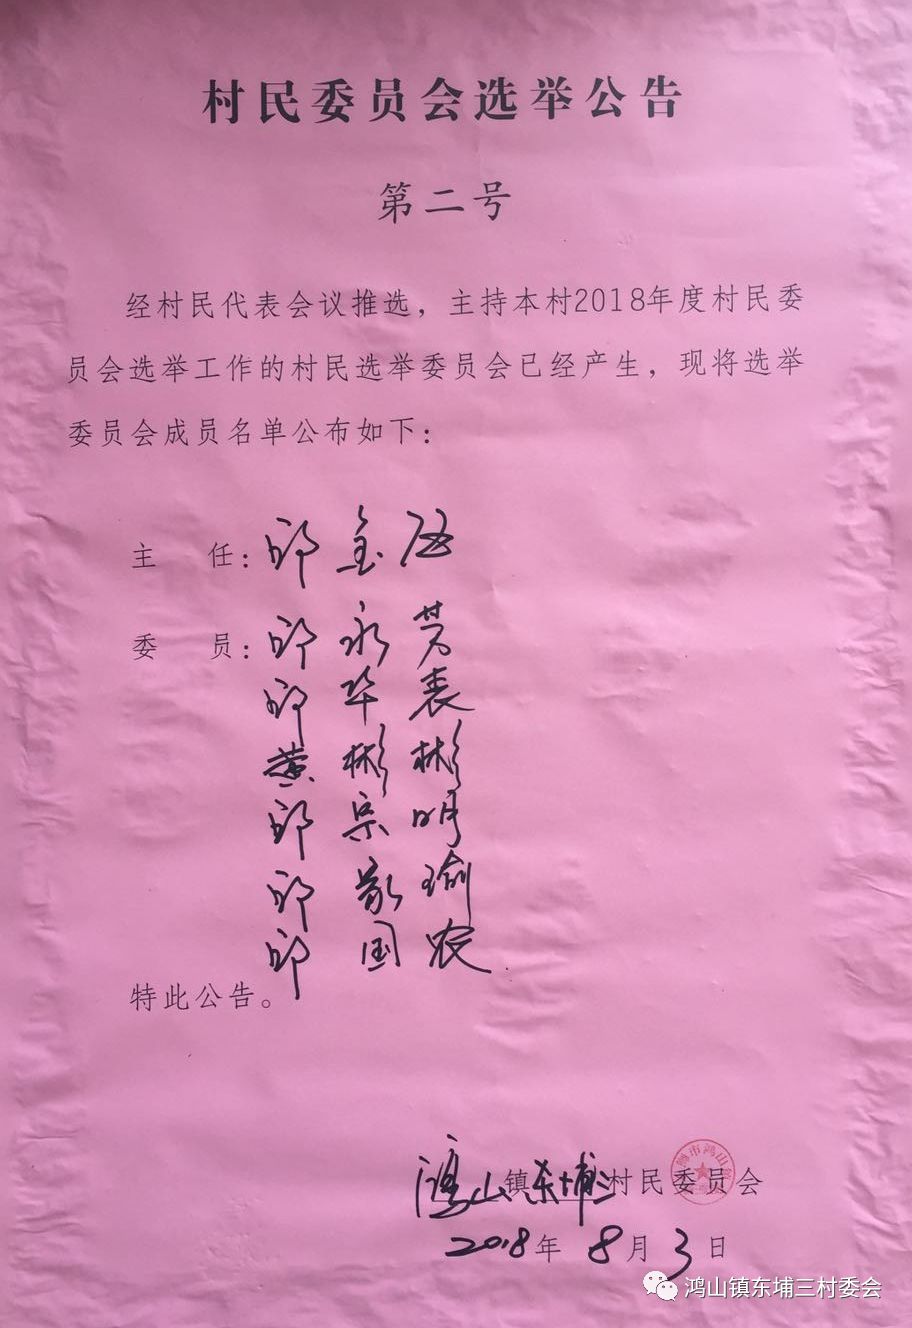 村民委员会选举公告
第二号
经村民代表会议推选，主持本村2018年度村民委
员会选举工作的村民选举委员会已经产生，现将选举
委员会成员名单公布如下：
主　任：邱金伍
委　员：邱永芳
邱华表
黄彬彬
邱宗明
邱家瑜
邱国农
特此公告。
鸿山镇东埔三村民委员会
2018年8月3日
鸿山镇东埔三村委会